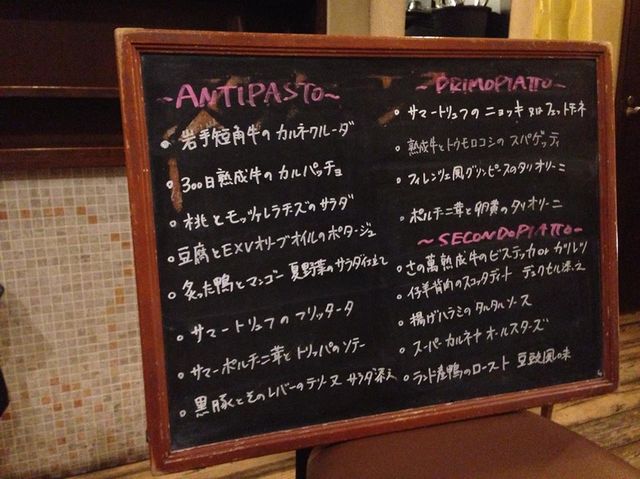 ~ANTIPASTO~
岩手短角牛のカルネクルーダ
300日熟成牛のカルパッチョ
桃とモッツァレラチーズのサラダ
豆腐とEXVオリーブオイルのポタージュ
炙った鴨とマンゴー 夏野菜のサラダ仕立て
サマートリュフのフリッタータ
サマーポルチーニ茸とトリッパのソテー
黒豚とそのレバーのテリーヌ サラダ添え
~PRIMOPIATTO~
サマートリュフのニョッキ又はフェットチネ
熟成牛とトウモロコシのスパゲッティ
フィレンツェ風グリンピースのタリオリーニ
ポルチーニ茸と卵黄のタリオリーニ
~SECONDOPIATTO~
さの萬熟成牛のビステッカor タリアータ
仔羊背肉のスコッタディート デュクセル添え
揚げハラミのタルタルソース
スーパーカルネヤ オールスターズ
ランド産鴨のロースト 豆鼓風味